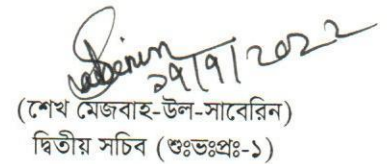 ২৭/৭/2022
(শেখ মেজবাহ-উল-সাবেরিন)
দ্বিতীয় সচিব (শুঃভঃপ্রঃ-১)